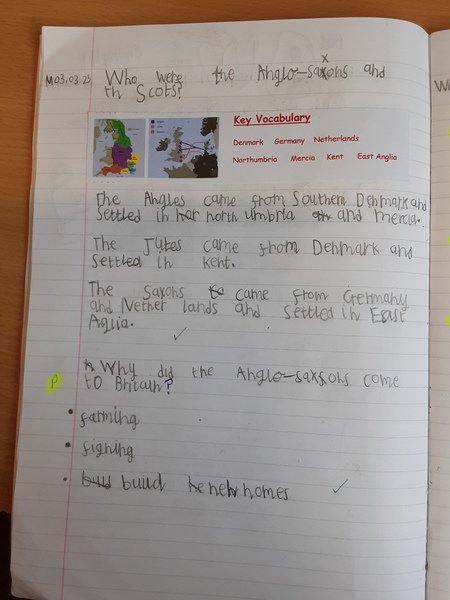 M03.03.25 Who were the Anglo-saxons and
th Scots?
Key Vocabulary
Denmark Germany Netherlands
Northumbria Mercia Kent East Anglia
The Angles came from Southern Denmark and
settled in north umbria and mercia.
The Jutes came from Denmark and
settled in kent.
The saxons came from Germany
and Nether lands and settled in East
Aglia.
P Why did the Anglo-saxsons come
to Britain?
• farming
• fighing
• build new homes